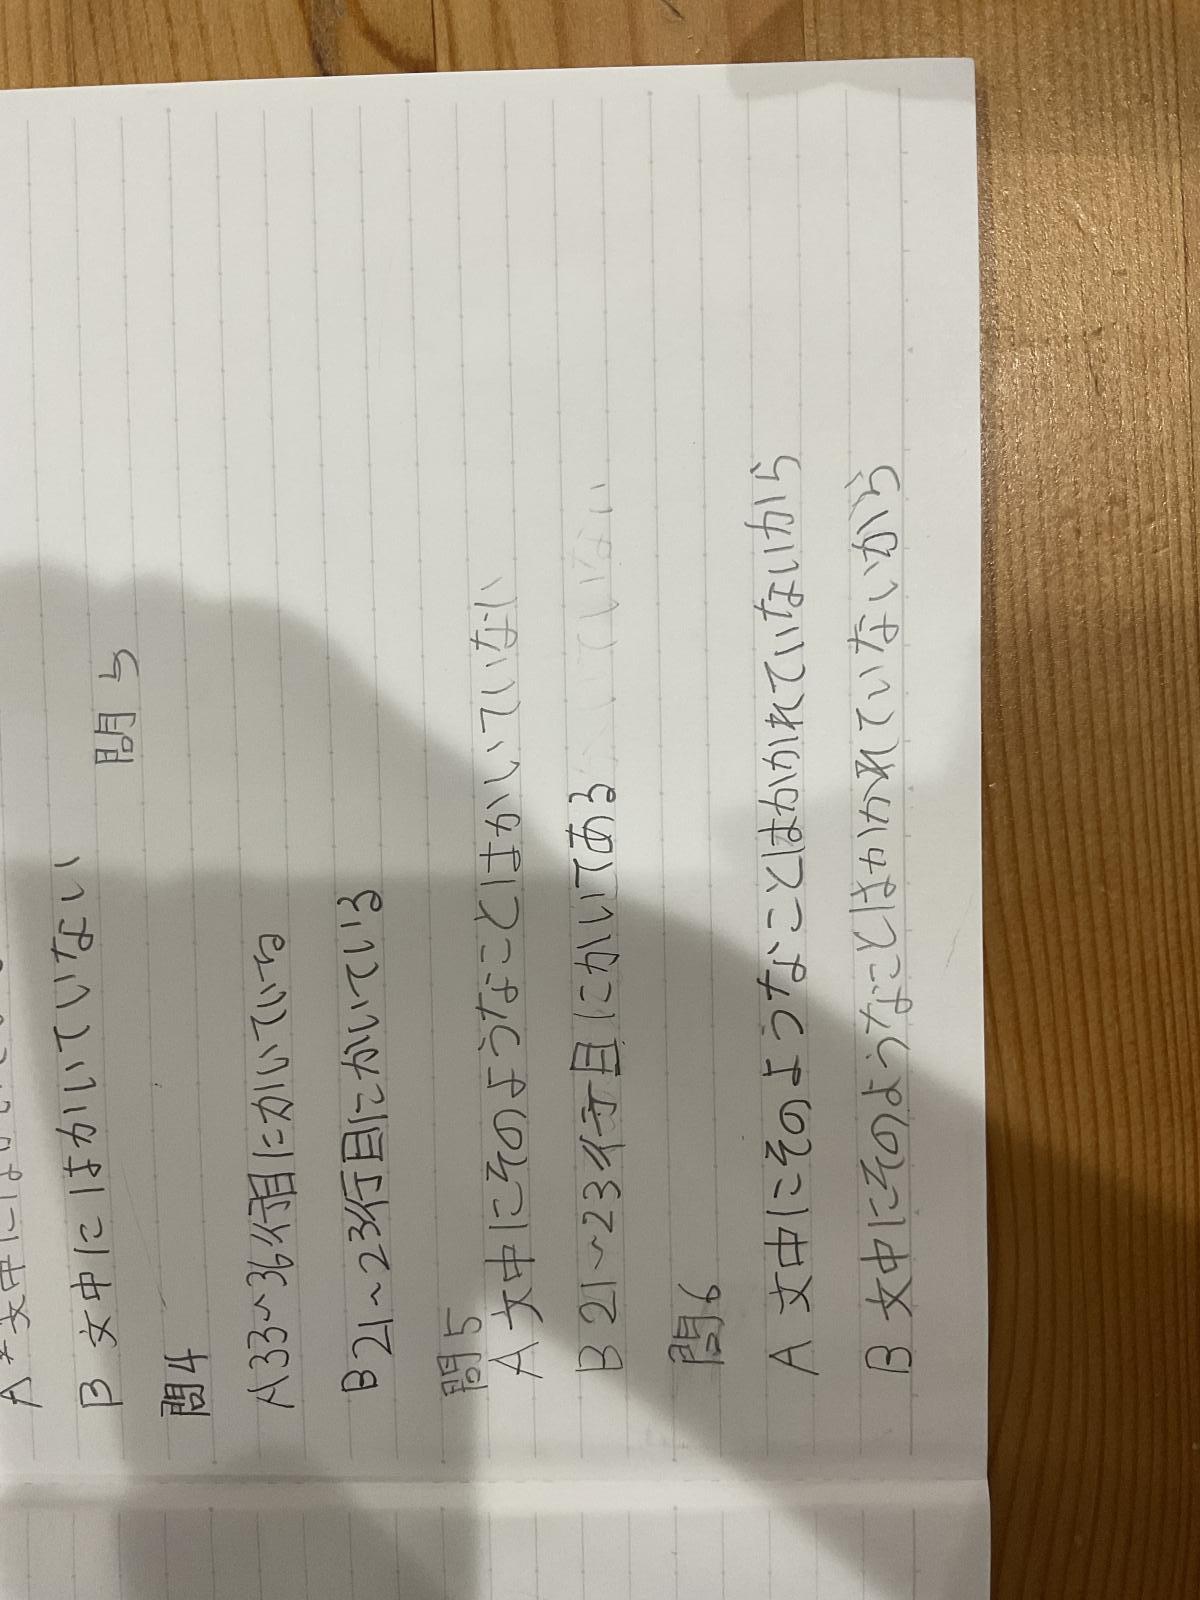 A*文中にはかい
B 文中にはかいていない
問5
問4
A33~36行目にかいている
B 21~23行目にかいている
問5
A 文中にそのようなことはかいていない
B 21~23行目にかいてある ていない
問6
A 文中にそのようなことはかかれていないから
B 文中にそのようなことはかかれていないから